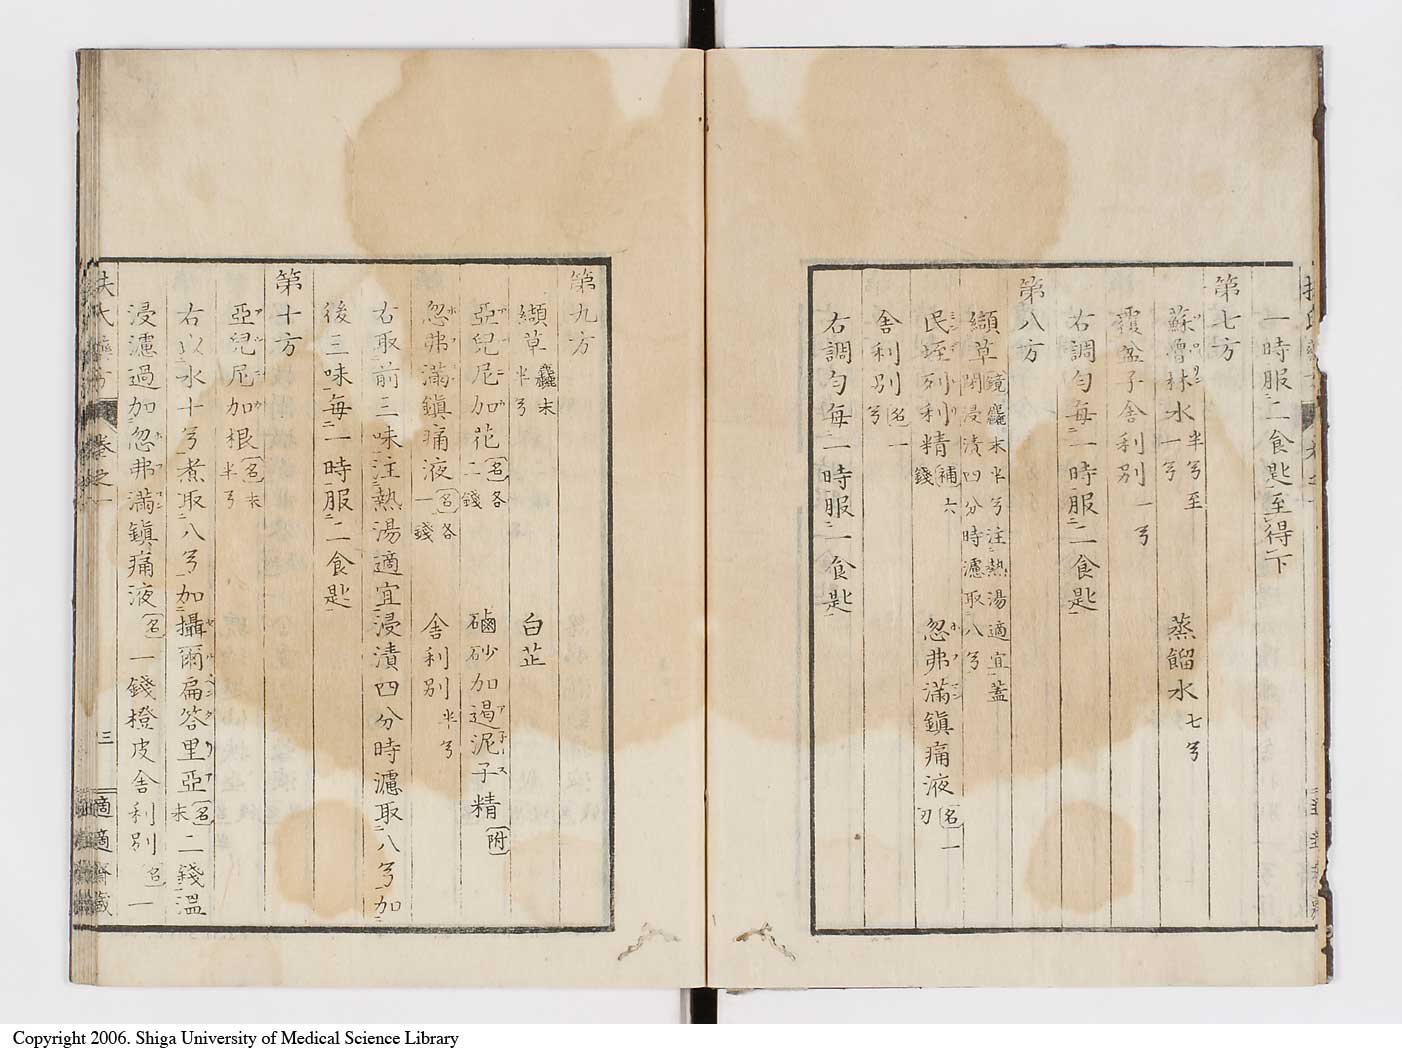 一時服二食匙至得下
第七方
蘇魯林水半兮至一兮 蒸餾水七兮
覆盆子舎利別一兮
右調勻每二時服二食匙
第八方
纈草閉浸漬四分時濾取八兮
鏡麤末半兮注熱湯適宜蓋
民垤列利精補六錢 忽弗滿鎮痛液名一刃
舎利別名一兮
右調勻每二時服二食匙
第九方
纈草麤末半兮 白芷
亞兒尼加花名各二錢 磠砂加遏泥子精附
忽弗滿鎮痛液名各一錢 舎利別半兮
右取前三味注熱湯適宜浸漬四分時濾取八兮加
後三味每一時服二食匙
第十方
亞兒尼加根名末半兮
右以水十兮煮取八兮加攝爾扁答里亞名末二錢溫
浸濾過加忽弗滿鎮痛液名一錢橙皮舎利別名一
扶氏 方 卷之一 三 適適齋藏
Copyright 2006. Shiga University of Medical Science Library